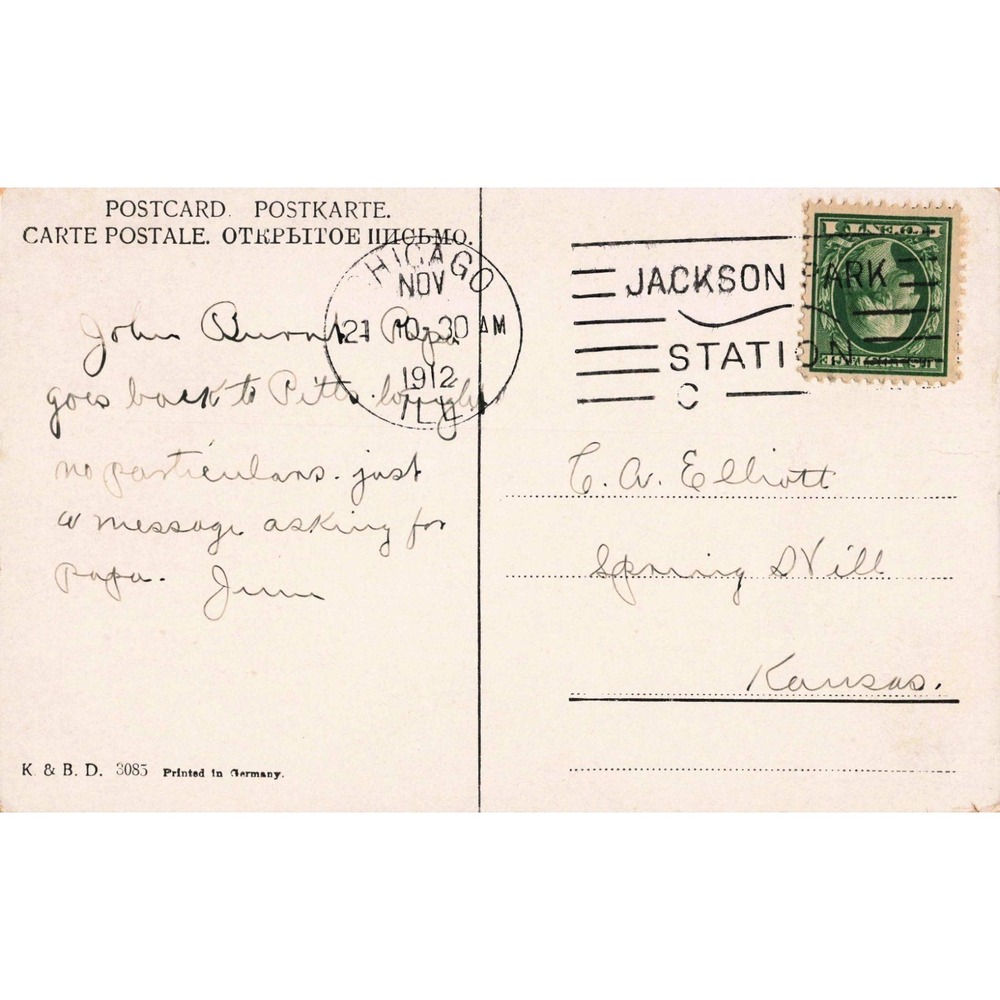 POSTCARD. POSTKARTE.
CARTE POSTALE. ОТКРЫТОЕ ПИСЬМО.
CHICAGO
NOV
21 10-30 AM
1912
ILL
JACKSON PARK
STATION
C
John Burnt Papa
goes back to Pitts. tonight
no particulars. just
a message asking for
papa. June
C. A. Elliott
Spring Hill
Kansas.
K. & B. D. 3085 Printed in Germany.